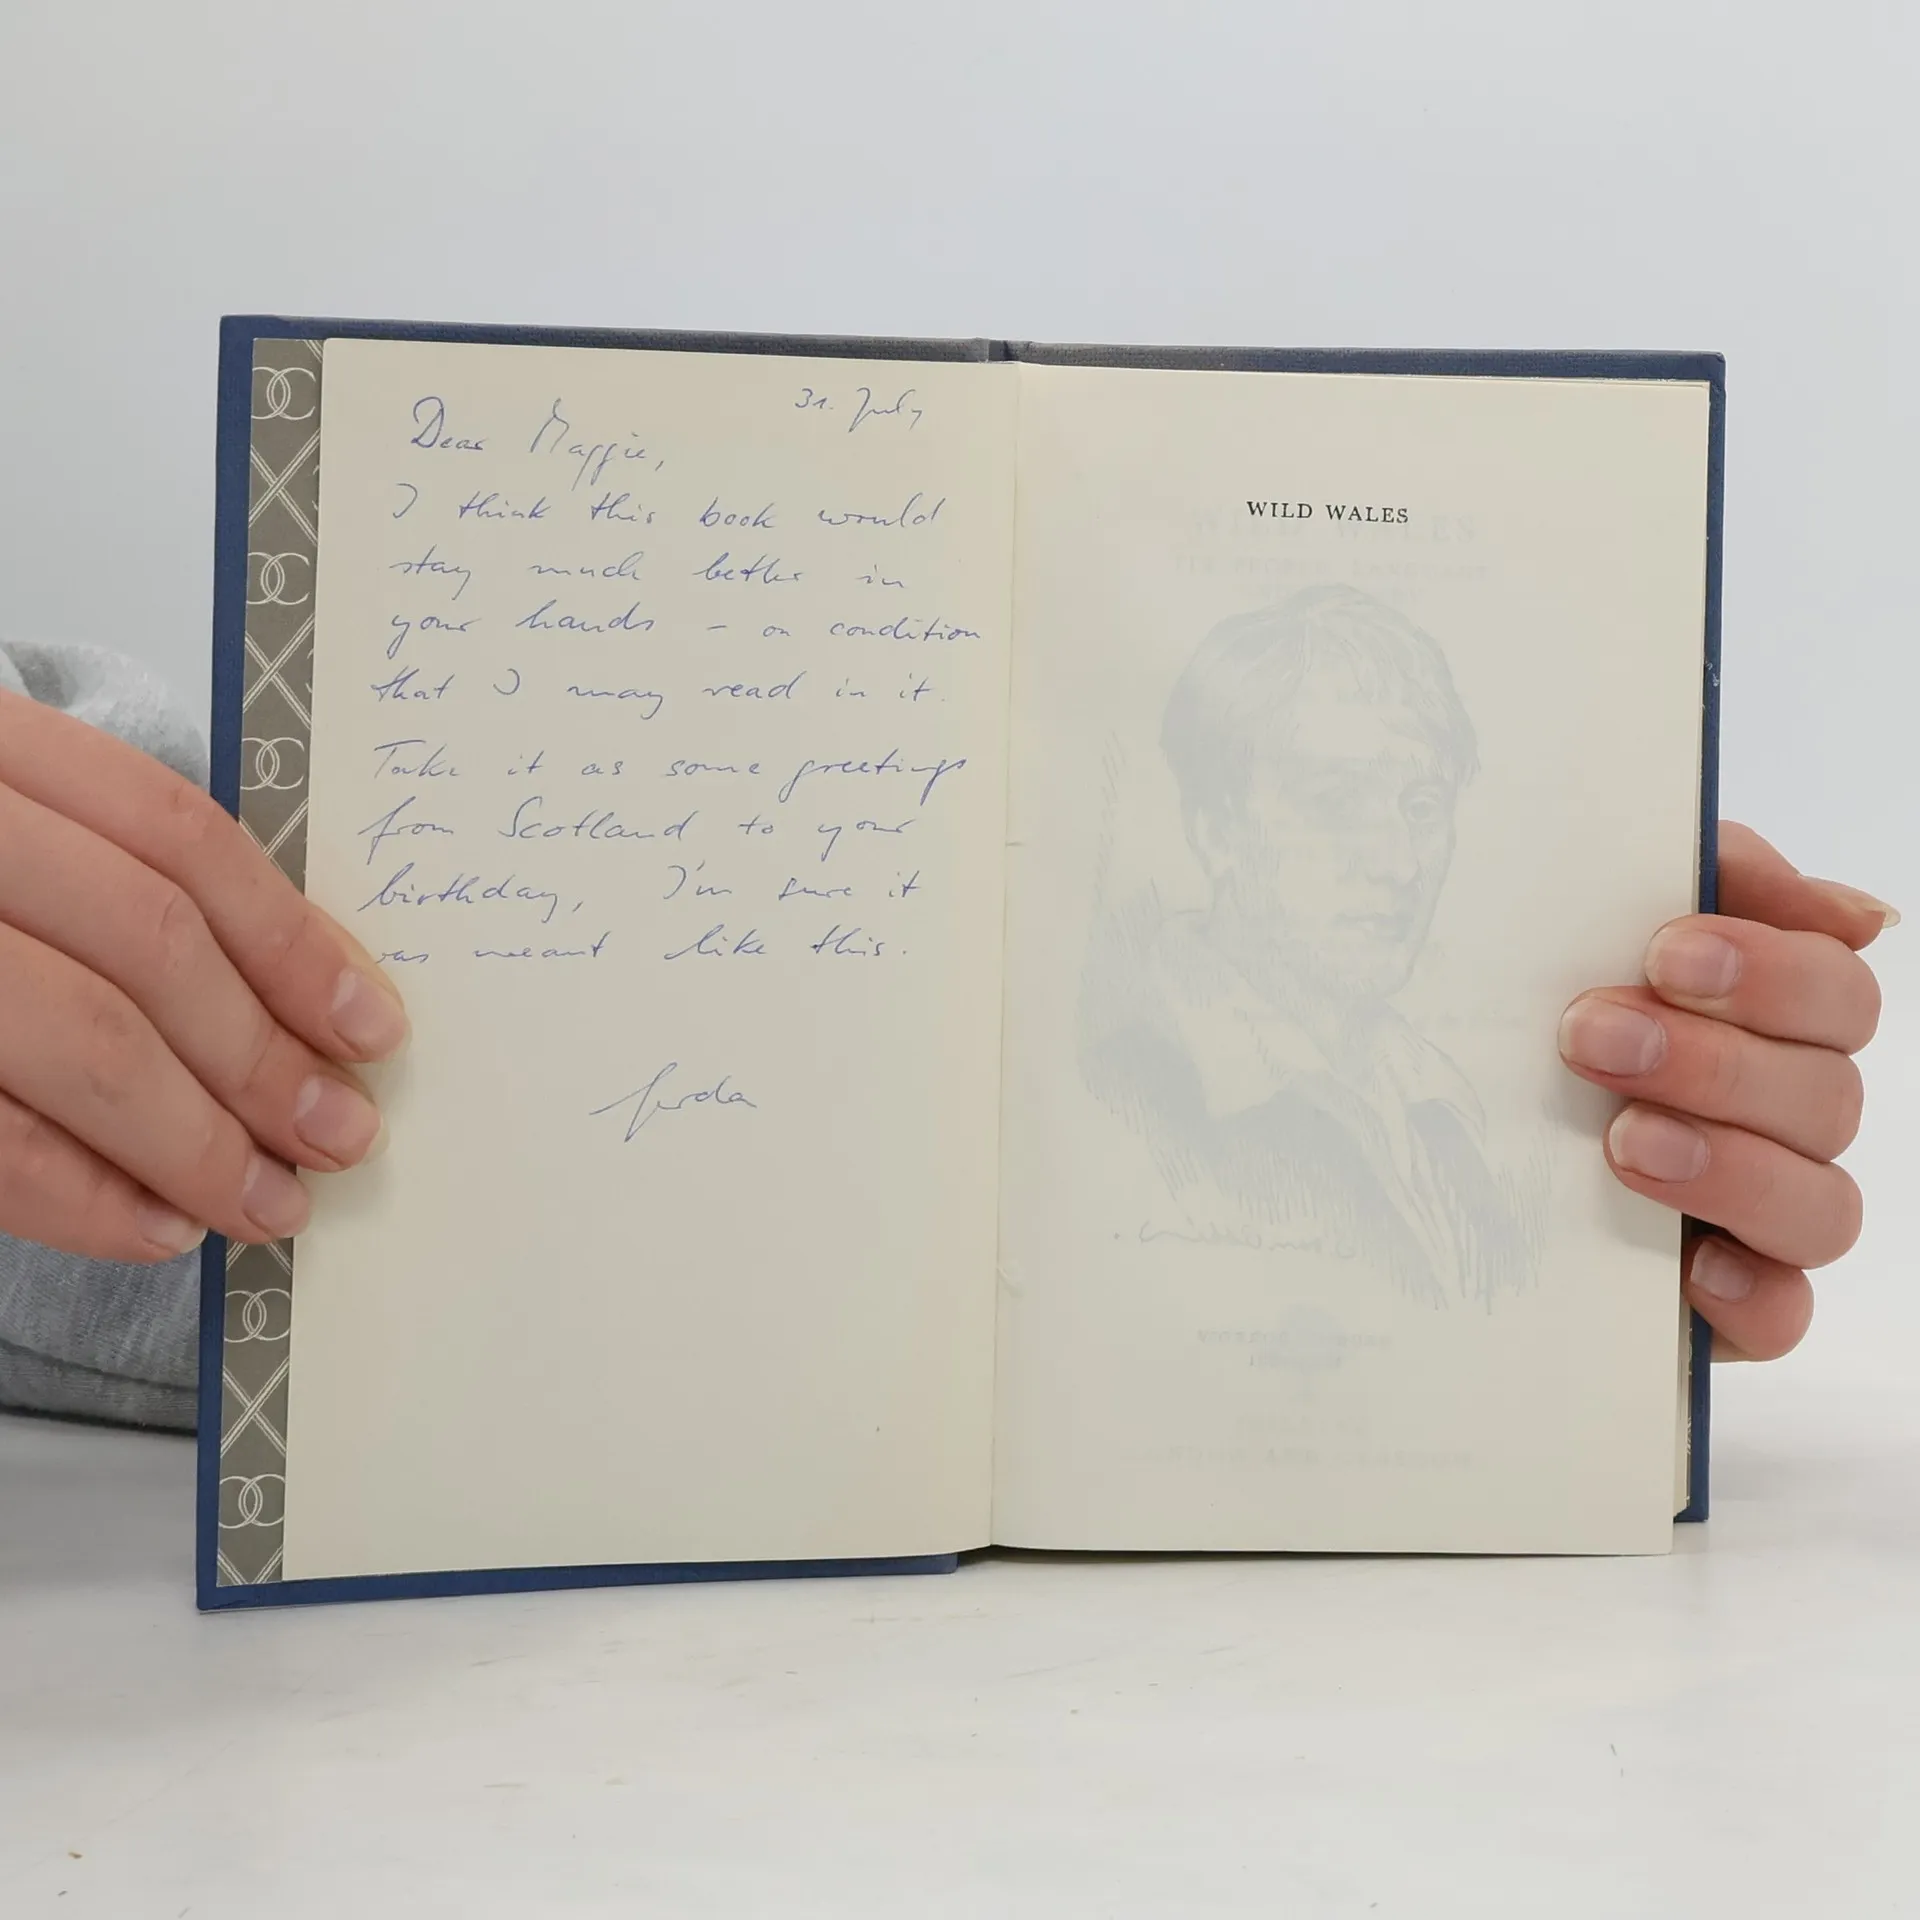 31. July
Dear Maggie,
I think this book would
stay much better in
your hands – on condition
that I may read in it.
Take it as some greetings
from Scotland to your
birthday, I'm sure it
was meant like this.
Gerda
WILD WALES